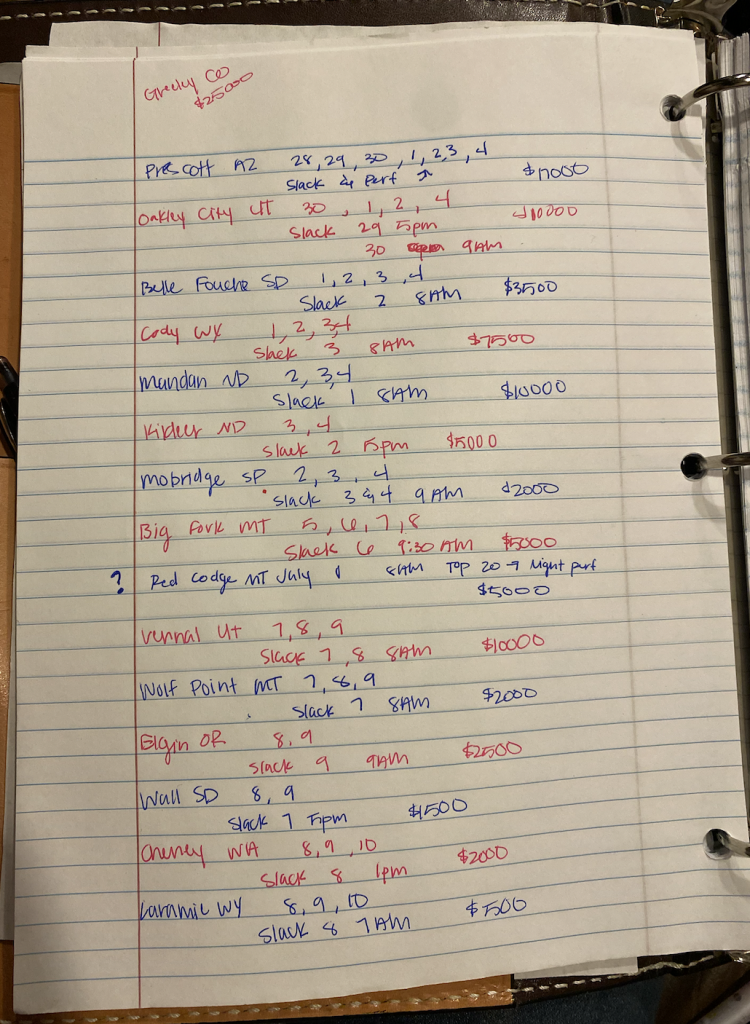 Greeley CO
$25000
Prescott AZ 28, 29, 30, 1, 2, 3, 4
Slack & Perf ↗ $17000
Oakley City UT 30, 1, 2, 4
$10000
Slack 29 5pm
30 9AM
Belle Fouche SD 1, 2, 3, 4
Slack 2 8AM $3500
Cody WY 1, 2, 3, 4
Slack 3 8AM $7500
Mandan ND 2, 3, 4
Slack 1 8AM $10000
Killdeer ND 3, 4
Slack 2 5pm $5000
Mobridge SD 2, 3, 4
Slack 3 & 4 9AM $2000
Big Fork MT 5, 6, 7, 8
Slack 6 9:30 AM $5000
? Red Lodge MT July 8AM TOP 20 → Night perf
$5000
Vernal Ut 7, 8, 9
Slack 7, 8 8AM $10000
Wolf Point MT 7, 8, 9
Slack 7 8AM $2000
Elgin OR 8, 9
Slack 9 9AM $2500
Wall SD 8, 9
Slack 7 5pm $1500
Cheney WA 8, 9, 10
Slack 8 1pm $2000
Laramie WY 8, 9, 10
Slack 8 7AM